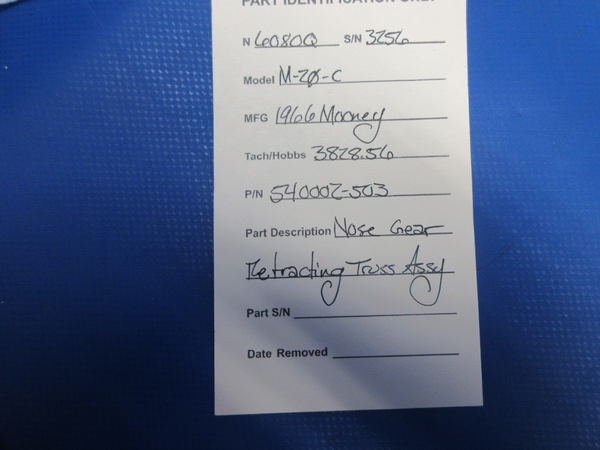 PART IDENTIFICATION ONLY
N 6080Q S/N 3256
Model M-20-C
MFG 1966 Mooney
Tach/Hobbs 3828.56
P/N 540002-503
Part Description Nose Gear
Retracting Truss Assy
Part S/N
Date Removed